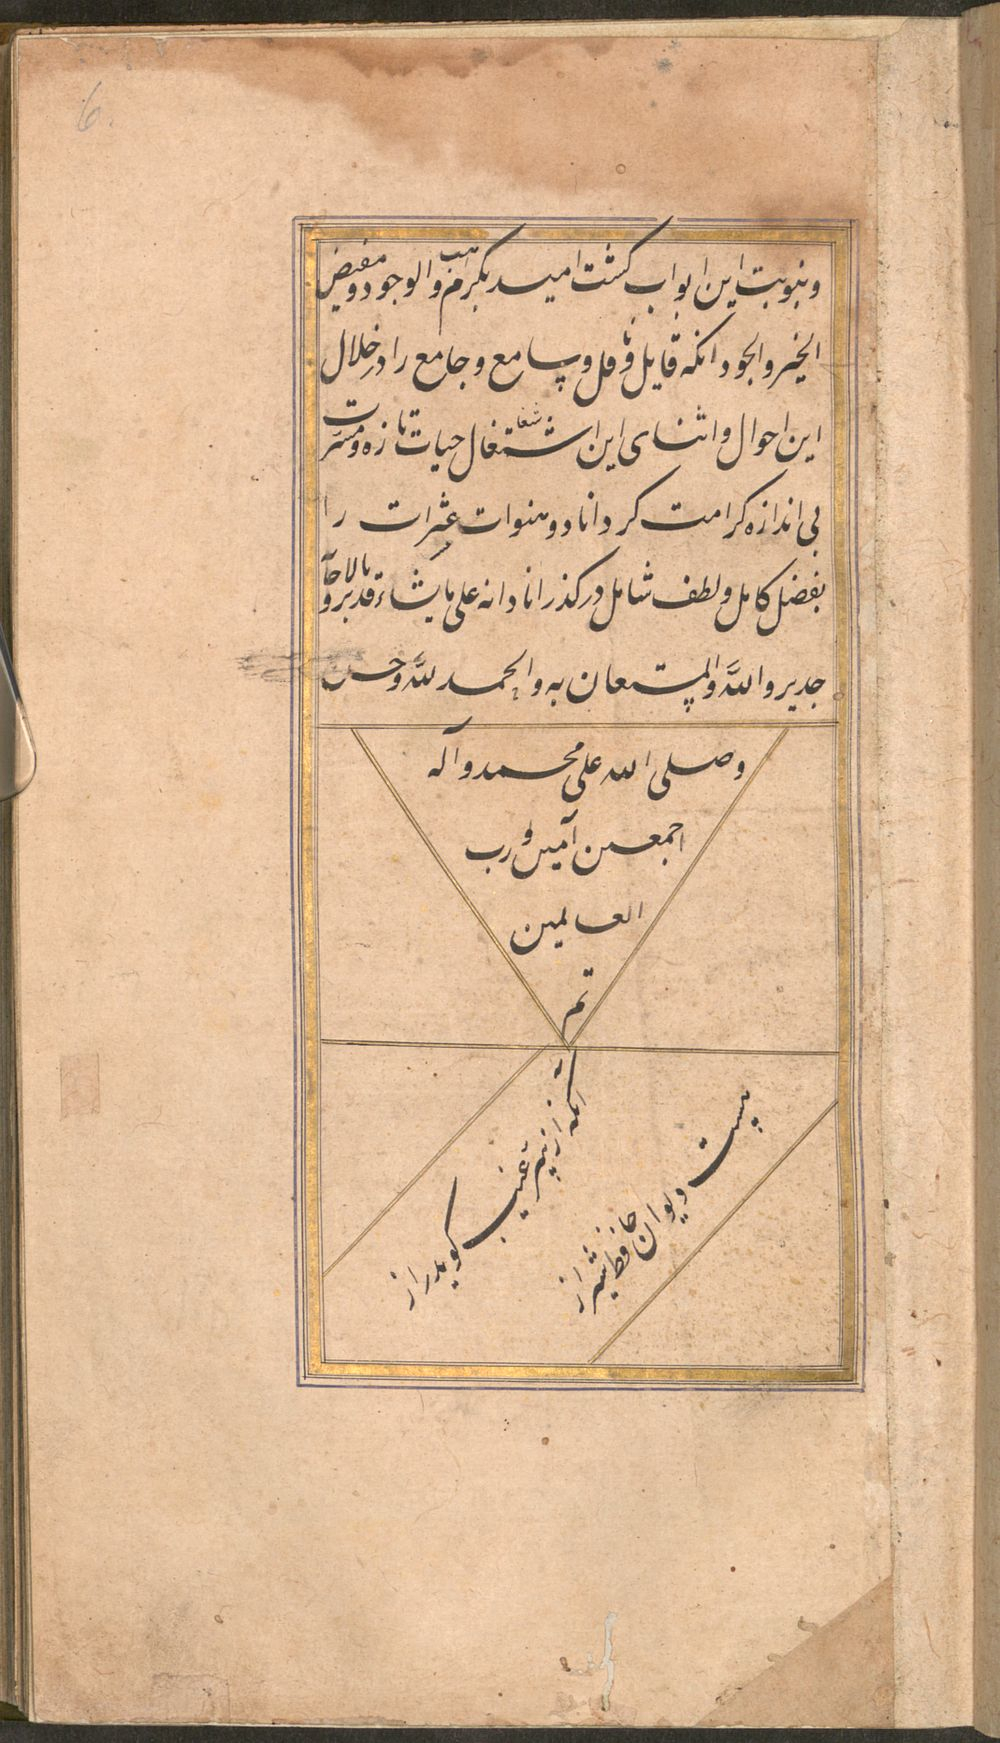 6
و بنوبت این ابواب کشت امید بکرم واهب الوجود و مفیض
الخیر والجود انکه قایل و ناقل و سامع و جامع را در خلال
این احوال و اثنای این اشتغال حیات تازه و مسرت
بی اندازه کرامت کرداناد و هفوات عثرات را
بفضل کامل و لطف شامل درکذراناد انه علی ما یشاء قدیر و بالاجابة
جدیر والله المستعان به والحمد لله وحسن
وصلی الله علی محمد وآله
اجمعین آمین رب
العالمین
تم
انکه از نیم غیب کوید راز
هست دیوان حافظ شیراز